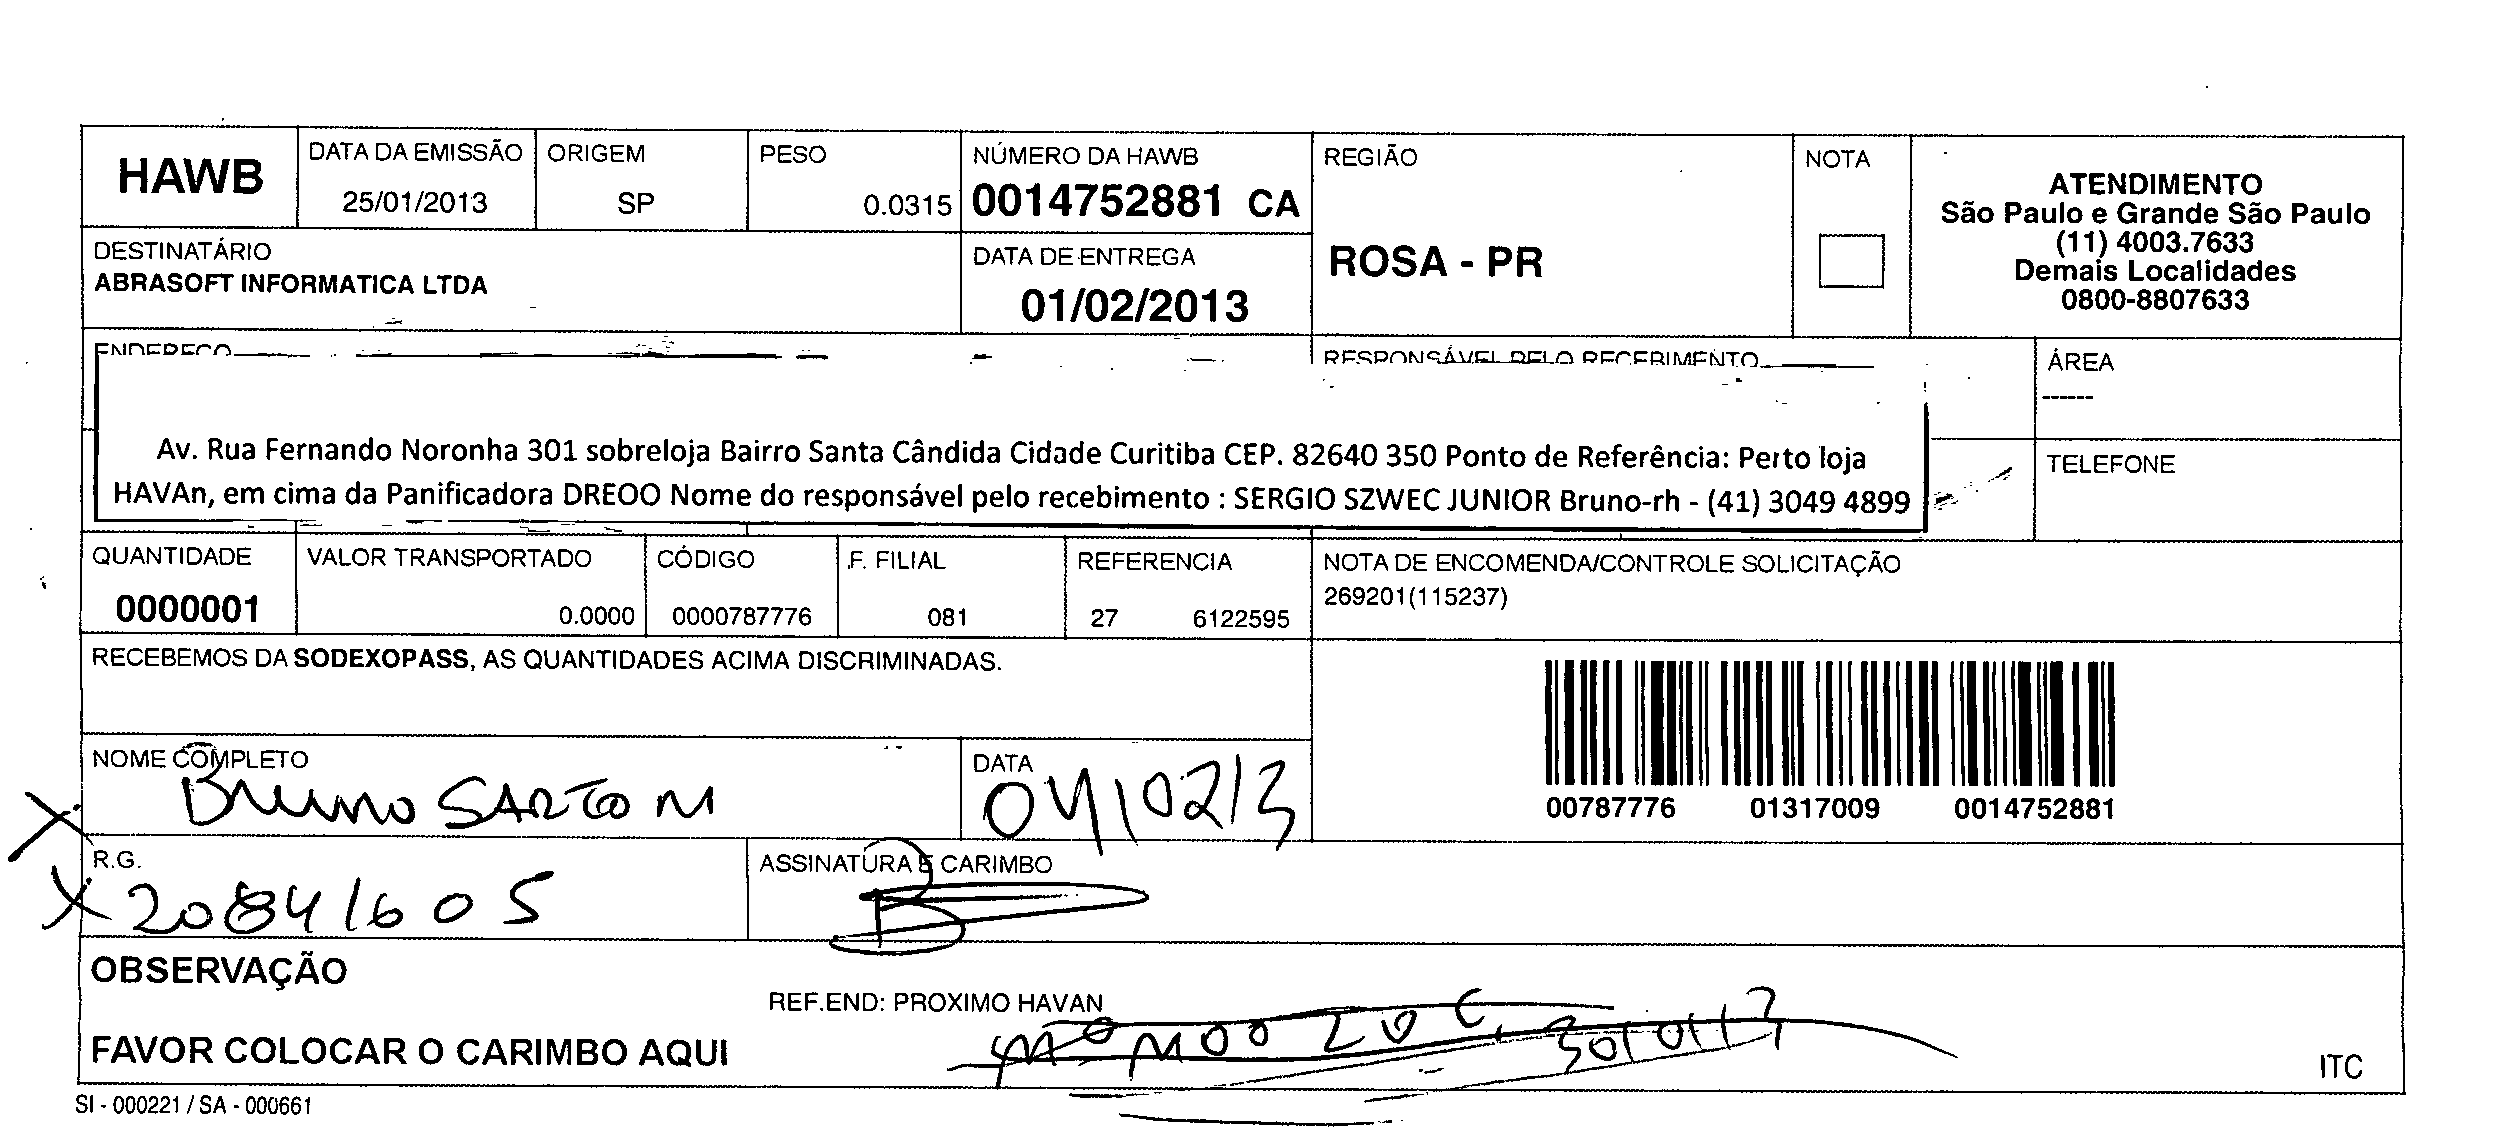 HAWB
DATA DA EMISSÃO
25/01/2013
ORIGEM
SP
PESO
0.0315
NÚMERO DA HAWB
0014752881 CA
REGIÃO
ROSA - PR
NOTA
ATENDIMENTO
São Paulo e Grande São Paulo
(11) 4003.7633
Demais Localidades
0800-8807633
DESTINATÁRIO
ABRASOFT INFORMATICA LTDA
DATA DE ENTREGA
01/02/2013
ENDEREÇO
RESPONSÁVEL PELO RECEBIMENTO
ÁREA
------
Av. Rua Fernando Noronha 301 sobreloja Bairro Santa Cândida Cidade Curitiba CEP. 82640 350 Ponto de Referência: Perto loja
HAVAn, em cima da Panificadora DREOO Nome do responsável pelo recebimento : SERGIO SZWEC JUNIOR Bruno-rh - (41) 3049 4899
TELEFONE
QUANTIDADE
0000001
VALOR TRANSPORTADO
0.0000
CÓDIGO
0000787776
F. FILIAL
081
REFERENCIA
27 6122595
NOTA DE ENCOMENDA/CONTROLE SOLICITAÇÃO
269201(115237)
RECEBEMOS DA SODEXOPASS, AS QUANTIDADES ACIMA DISCRIMINADAS.
00787776 01317009 0014752881
NOME COMPLETO
Bruno SARTORI
DATA
04/02/13
R.G.
20841605
ASSINATURA E CARIMBO
OBSERVAÇÃO
REF.END: PROXIMO HAVAN
30/01/13
FAVOR COLOCAR O CARIMBO AQUI
ITC
SI - 000221 / SA - 000661